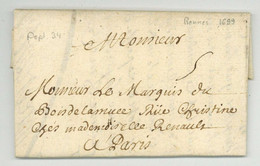 Rennes 1689
Monsieur
5
Monsieur Le Marquis du
Boisdelamuce Rüe Christine
Ches mademoiselle Renault
A Paris